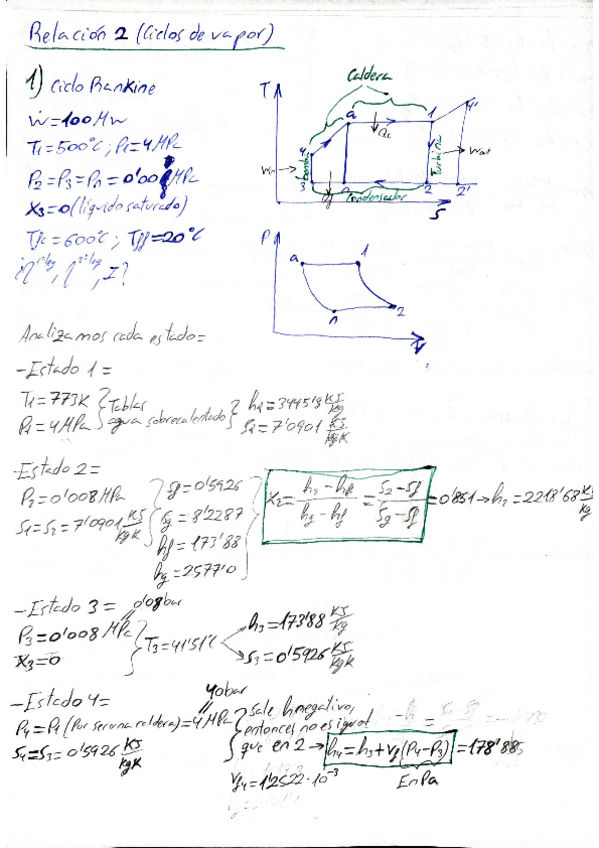 Relación 2 (Ciclos de vapor)
1) Ciclo Rankine
Ẇ=100MW
T1=500°C; P1=4MPa
P2=P3=Pn=0'008MPa
X3=0 (líquido saturado)
Tfc=600°C; Tff=20°C
Caldera
T
a
1
1'
4
3
n
2
2'
Bomba
Turbina
Wout
Condensador
S
P
a
1
n
2
V
Analizamos cada estado=
-Estado 1=
T1=773K
P1=4MPa
Tablas
agua sobrecalentado
h1=3445'3 KJ/kg
s1=7'0901 KJ/kgK
-Estado 2=
P2=0'008MPa
S1=S2=7'0901 KJ/kgK
sf=0'5926
sg=8'2287
hf=173'88
hg=2577'0
X2= (h2-hf)/(hg-hf) = (S2-Sf)/(Sg-Sf) =0'851→h2=2218'68 KJ/kg
-Estado 3=
0'08bar
P3=0'008MPa
X3=0
T3=41'51°C
h3=173'88 KJ/kg
s3=0'5926 KJ/kgK
-Estado 4=
40bar
P4=P1(Por ser una caldera)=4MPa
S4=S3=0'5926 KJ/kgK
Sale h negativo,
entonces no es igual
que en 2→ h4=h3+vf(P4-P3) =178'88
vf4=1'2522·10⁻³
En Pa